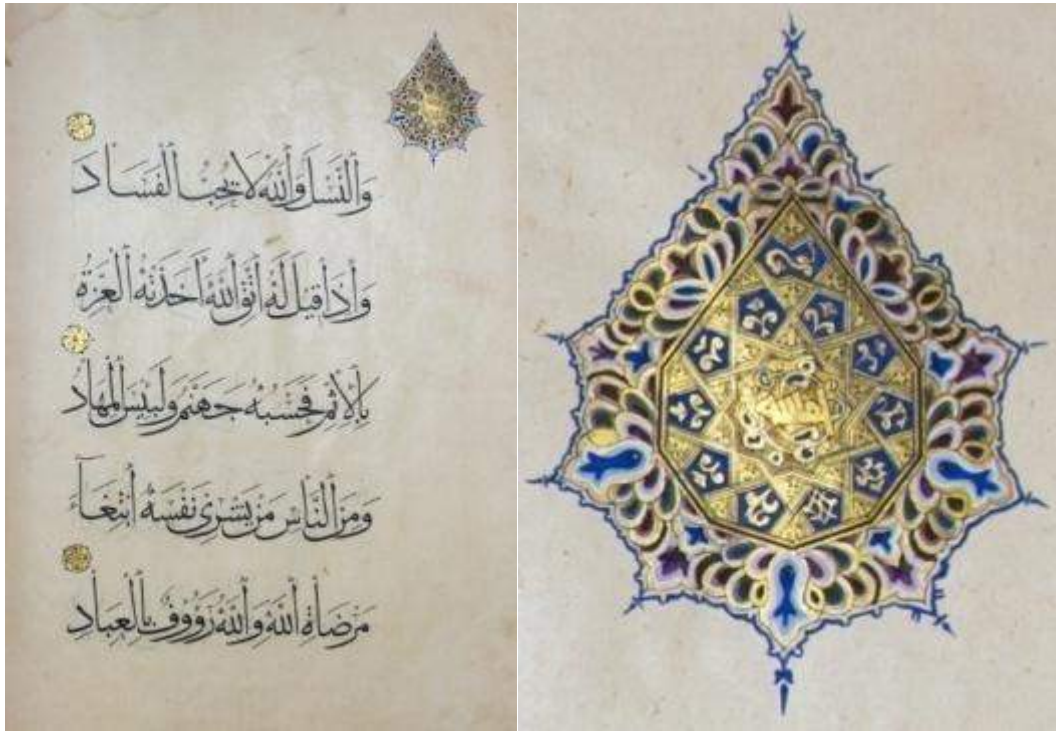 وَالنَّسْلَ وَاللَّهُ لَا يُحِبُّ الْفَسَادَ
وَإِذَا قِيلَ لَهُ اتَّقِ اللَّهَ أَخَذَتْهُ الْعِزَّةُ
بِالْإِثْمِ فَحَسْبُهُ جَهَنَّمُ وَلَبِئْسَ الْمِهَادُ
وَمِنَ النَّاسِ مَنْ يَشْرِي نَفْسَهُ ابْتِغَاءَ
مَرْضَاةِ اللَّهِ وَاللَّهُ رَؤُوفٌ بِالْعِبَادِ